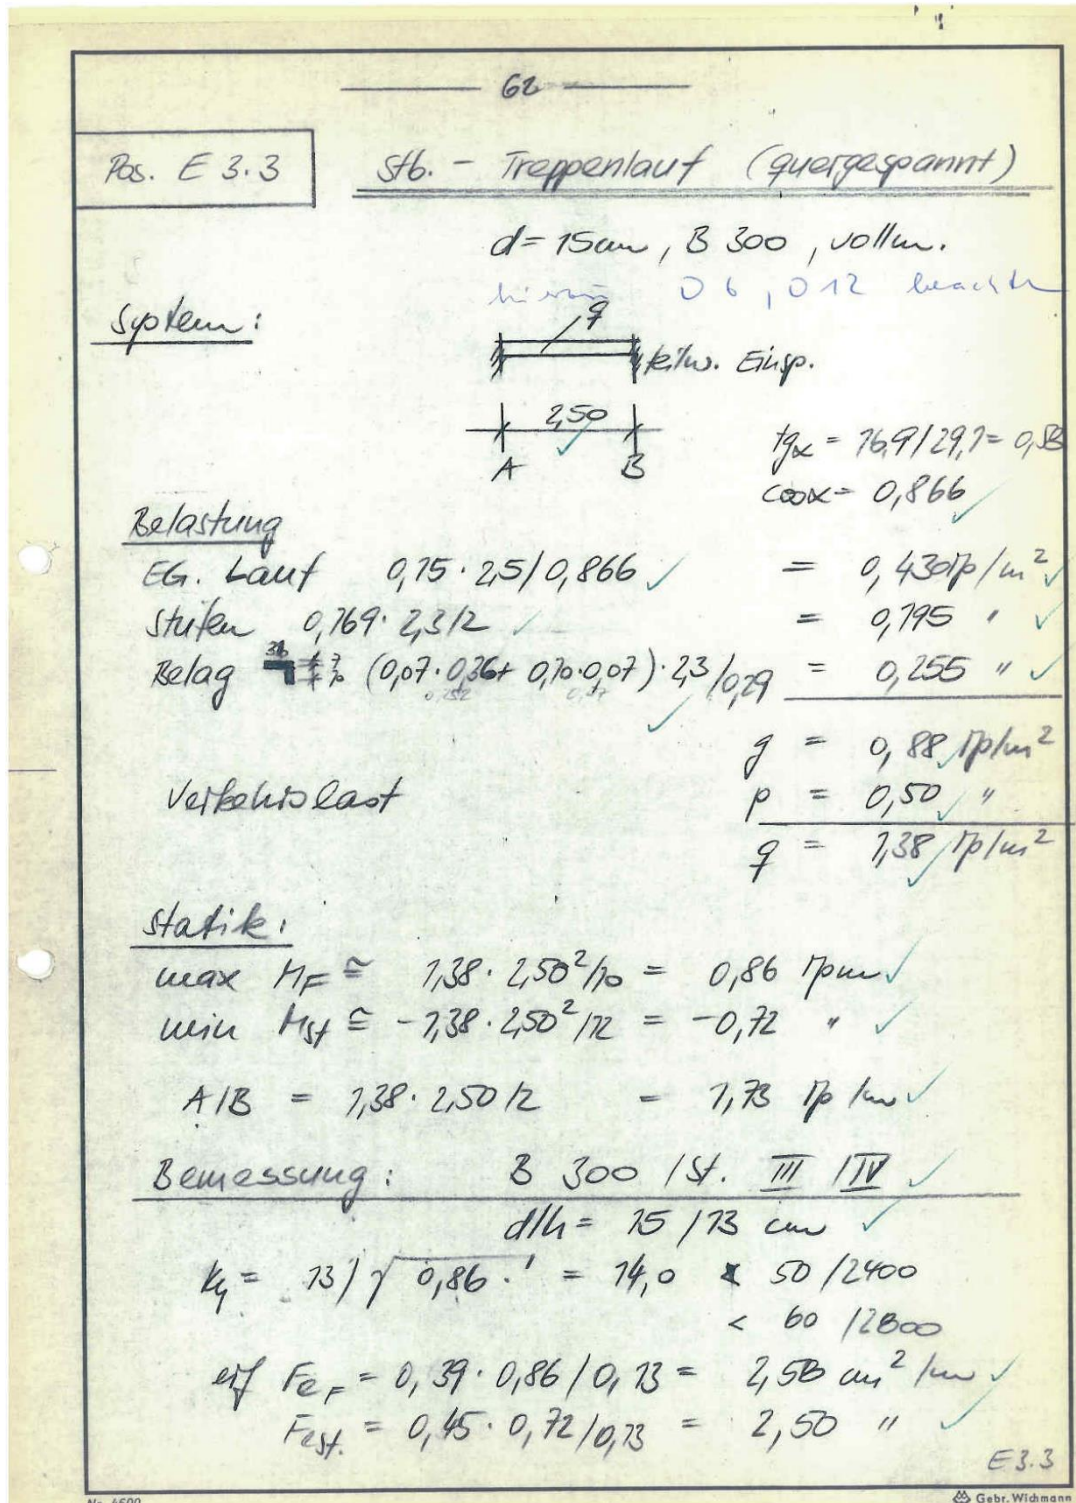 62
Pos. E 3.3
Stb. - Treppenlauf (quergespannt)
d = 15cm, B 300, vollw.
06, 012 beachten
System:
q
teilw. Einsp.
2,50
A B
tgα = 16,9/29,1 = 0,58
cosα = 0,866
Belastung
EG. Lauf 0,15 · 2,5/0,866 = 0,430 Mp/m²
Stufen 0,169 · 2,3/2 = 0,195 "
Belag 36 7 10 (0,07 · 0,36 + 0,10 · 0,07) · 2,3/0,29 = 0,255 "
g = 0,88 Mp/m²
Verkehrslast p = 0,50 "
q = 1,38 Mp/m²
Statik:
max M_F ≅ 1,38 · 2,50²/10 = 0,86 Mpm
min M_St ≅ -1,38 · 2,50²/12 = -0,72 "
A/B = 1,38 · 2,50/2 = 1,73 Mp/m
Bemessung: B 300 / St. III / IV
d/h = 15/13 cm
= 13/√0,86 = 14,0 50/2400
< 60/2800
erf Fe_F = 0,39 · 0,86/0,13 = 2,58 cm²/m
Fe_St. = 0,45 · 0,72/0,13 = 2,50 "
E 3.3
No. 4600
Gebr. Wichmann